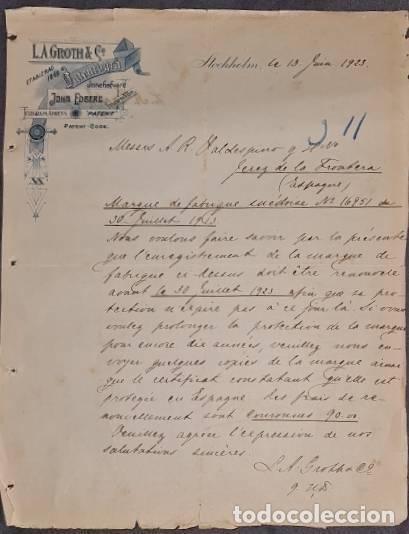 L.A. GROTH & Co
ETABLERAD 1869
Patentbyrå
Innehafvare
JOHN EDBERG
TELEGRAM ADRESS PATENT
PATENT-CODE.
Stockholm, le 13 Juin 1923.
11
Messrs A. R. Valdespino y Hno
Jerez de la Frontera
(Espagne)
Marque de fabrique suédoise No 16951 du
30 Juillet 1913.
Nous voulons faire savoir par la présente
que l'enregistrement de la marque de
fabrique ci-dessus doit être renouvelé
avant le 30 Juillet 1923 afin que sa pro-
tection n'expire pas à ce jour là. Si vous
voulez prolonger la protection de la marque
pour encore dix années, veuillez nous en-
voyer quelques copies de la marque ainsi
que le certificat constatant qu'elle est
protégée en Espagne. Les frais de re-
nouvellement sont Couronnes 90.00
Veuillez agréer l'expression de nos
salutations sincères
L. A. Groth & Co
todocoleccion.net